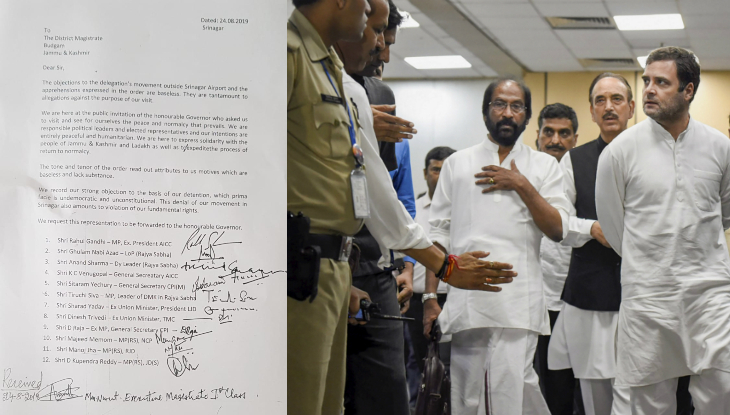 Dated: 24.08.2019
Srinagar
To
The District Magistrate
Budgam
Jammu & Kashmir
Dear Sir,
The objections to the delegation's movement outside Srinagar Airport and the
apprehensions expressed in the order are baseless. They are tantamount to
allegations against the purpose of our visit
We are here at the public invitation of the honourable Governor who asked us
to visit and see for ourselves the peace and normalcy that prevails. We are
responsible political leaders and elected representatives and our intentions are
entirely peaceful and humanitarian. We are here to express solidarity with the
people of Jammu & Kashmir and Ladakh as well as expedite the process of
return to normalcy.
The tone and tenor of the order read out attributes to us motives which are
baseless and lack substance.
We record our strong objection to the basis of our detention, which prima
facie is undemocratic and unconstitutional. This denial of our movement in
Srinagar also amounts to violation of our fundamental rights.
We request this representation to be forwarded to the honourable Governor.
1. Shri Rahul Gandhi – MP, Ex. President AICC
2. Shri Ghulam Nabi Azad – LoP (Rajya Sabha)
3. Shri Anand Sharma – Dy Leader (Rajya Sabha)
4. Shri K C Venugopal – General Secreatary AICC
5. Shri Sitaram Yechury – General Secretary CPI(M)
6. Shri Tiruchi Siva – MP, Leader of DMK in Rajya Sabha
7. Shri Sharad Yadav – Ex Union Minister, President LJD
8. Shri Dinesh Trivedi – Ex Union Minister, TMC
9. Shri D Raja – Ex MP, General Secretary CPI
10. Shri Majeed Memom – MP(RS), NCP
11. Shri Manoj Jha – MP(RS), RJD
12. Shri D Kupendra Reddy – MP(RS), JD(S)
Received
24-8-2019
Executive Magistrate Ist Class